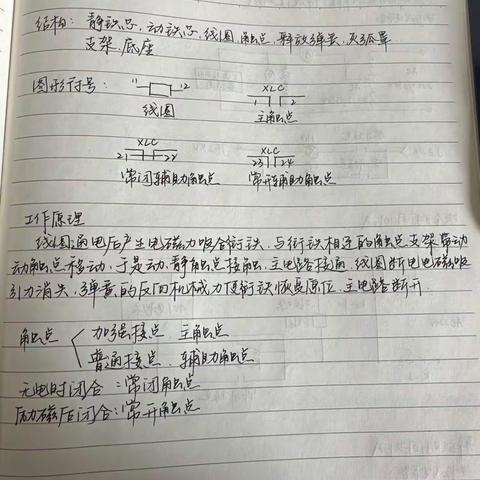 结构：静铁芯，动铁芯，线圈，触点，释放弹簧，灭弧罩
支架，底座
图形符号：
11 12 XLC 1 2
线圈 主触点
XLC XLC
21 22 23 24
常闭辅助触点 常开辅助触点
工作原理
线圈通电后产生电磁力吸合衔铁，与衔铁相连的触点支架带动
动触点移动，于是动、静触点接触，主电路接通，线圈断电电磁吸
引力消失，弹簧的反向机械力使衔铁恢复原位，主电路断开．
触点 加强接点 主触点
普通接点．辅助触点
无电时闭合：常闭触点
励磁后闭合：常开触点